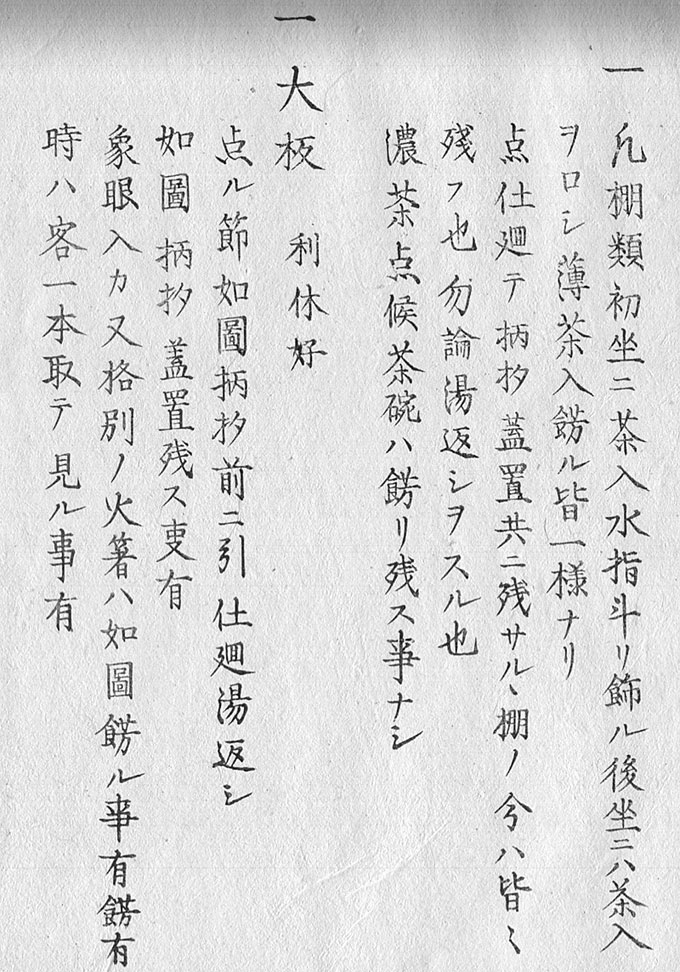 一 凡棚類初坐ニ茶入水指斗リ飾ル後坐ニハ茶入
ヲロシ薄茶入餝ル皆一様ナリ
点仕廻テ柄杓蓋置共ニ残サルヽ棚ノ分ハ皆〻
残ス也勿論湯返シヲスル也
濃茶点候茶碗ハ餝リ残ス事ナシ
一 大板 利休好
点ル節如圖柄杓前ニ引仕廻湯返シ
如圖柄杓蓋置残ス叓有
象眼入カ又格別ノ火箸ハ如圖餝ル事有餝有
時ハ客一本取テ見ル事有